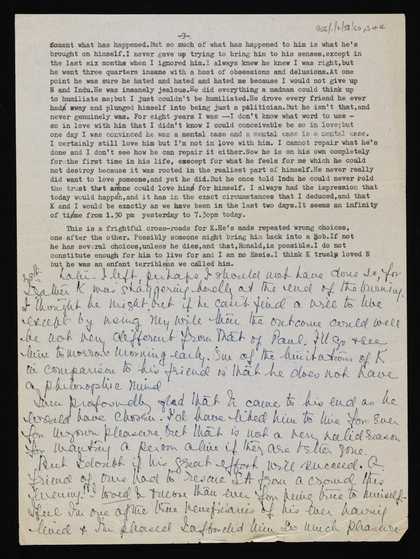 -3-
foment what has happened.But so much of what has happened to him is what he's
brought on himself.I never gave up trying to bring him to his senses,except in
the last six months when I ignored him.I always knew he knew I was right,but
he went three quarters insane with a host of obsessions and delusions.At one
point he was sure he hated and hated and hated me because I would not give up
N and Indu.He was insanely jealous.He did everything a madman could think up
to humiliate me;but I just couldn't be humiliated.He drove every friend he ever
had away and plunged himself into being just a politician.But he isn't that,and
never genuinely was. For eight years I was --I don't know what word to use -
so in love with him that I didn't know I could conceivable be so in love;but
one day I was convinced he was a mental case and a mental case is a mental case.
I certainly still love him but I'm not in love with him. I cannot repair what he's
done and I don't see how he can repair it either.Now he is on his own completely
for the first time in his life, except for what he feels for me which he could
not destroy because it was rooted in the realiest part of himself.He never really
did want to love someone,and yet he did.But he once told Indu he could never rold
the trust that anone could love him for himself. I always had the impression that
today would happen,and it has in the exact circumstances that I deduced,and that
K and I would be exactly as we have been in the last two days.It seems an infinity
of time from 1.30 pm yesterday to 7.30pm today.
This is a frightful cross-roads for K.He's made repeated wrong choices,
one after the other. Possibly someone might bring him back into a Bob.If not
he has several choices,unless he dies,and that,Ronald,is possible.I do not
constitute enough for him to live for and I an no Essie.I think K truely loved N
but he was an enfant terrible as we called him.
Later I left, perhaps I should not have done so, for
K was staggering badly at the end of the burning.
I thought he might but if he can't find a will to live
except by using my wife then the outcome could well
be not very different from that of Paul. I'll go & see
him tomorrow morning early. One of the limitations of K
in comparison to his friend is that he does not have
a philosophic mind
I am profoundly glad that N came to his end as he
would have chosen. I'd have liked him to live for ever
for my own pleasure, but that is not a very valid reason
for wanting a person alive if they are better gone.
But I doubt if his great effort will succeed. A
friend of ours had to rescue from a crowd this
evening. I loved N more than ever for being true to himself.
I feel I'm one of the true beneficiaries of his ever having
lived & I'm pleased I afforded him so much pleasure